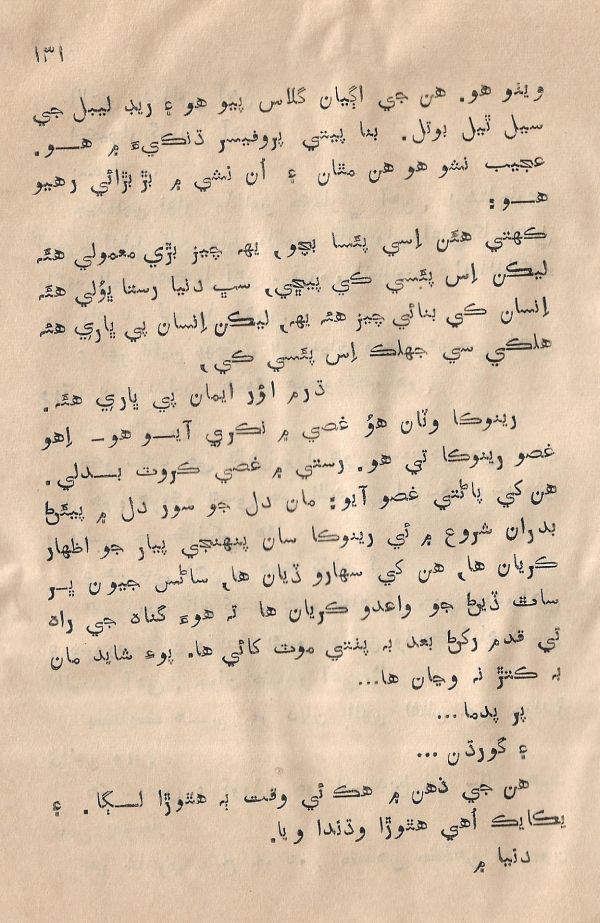 ۱۳۱
ويٺو هو. هن جي اڳيان گلاس پيو هو ۽ ريڊ ليبل جي
سيل ٿيل بوتل. بنا پيتي پروفيسر ڌنڪيءَ ۾ هـــو.
عجيب نشو هو هن مٿان ۽ اُن نشي ۾ بڙبڙائي رهيو
هـــو:
ڪهتي هئن اِسي پئسا بچو، يهہ چيز بڙي معمولي هئه
ليڪن اِس پئسي ڪي پيڇي، سڀ دنيا رستا ڀوُلي هئه
اِنسان ڪي بنائي چيز هئه يهہ، ليڪن اِنسان پي ڀاري هئه
هلڪي سي جهلڪ اِس پئسي ڪي،
ڌرم اؤر ايمان پي ڀاري هئه.
رينوڪا وٽان هوُ غصي ۾ نڪري آيـــو هو- اِهو
غصو رينوڪا تي هو. رستي ۾ غصي ڪروٽ بـــدلي.
هن کي پاڻتي غصو آيو: مان دل جو سور دل ۾ پيئڻ
بدران شروع ۾ ئي رينوڪا سان پنهنجي پيار جو اظهار
ڪريان ها، هن کي سهارو ڏيان ها، ساڻس جيون ڀــر
ساٿ ڏيڻ جو واعدو ڪريان ها تہ هوءَ گناہ جي راہ
تي قدم رکڻ بعد بہ پنتي موٽ کائي ها. پوءِ شايد مان
بہ ڪٿڙ نہ وڃان ها...
پر پدما...
۽ گورڌن ...
هن جي ذهن ۾ هڪ ئي وقت ٻہ هٿوڙا لـــڳا. ۽
يڪايڪ اُهي هٿوڙا وڌندا ويا.
دنيا ۾